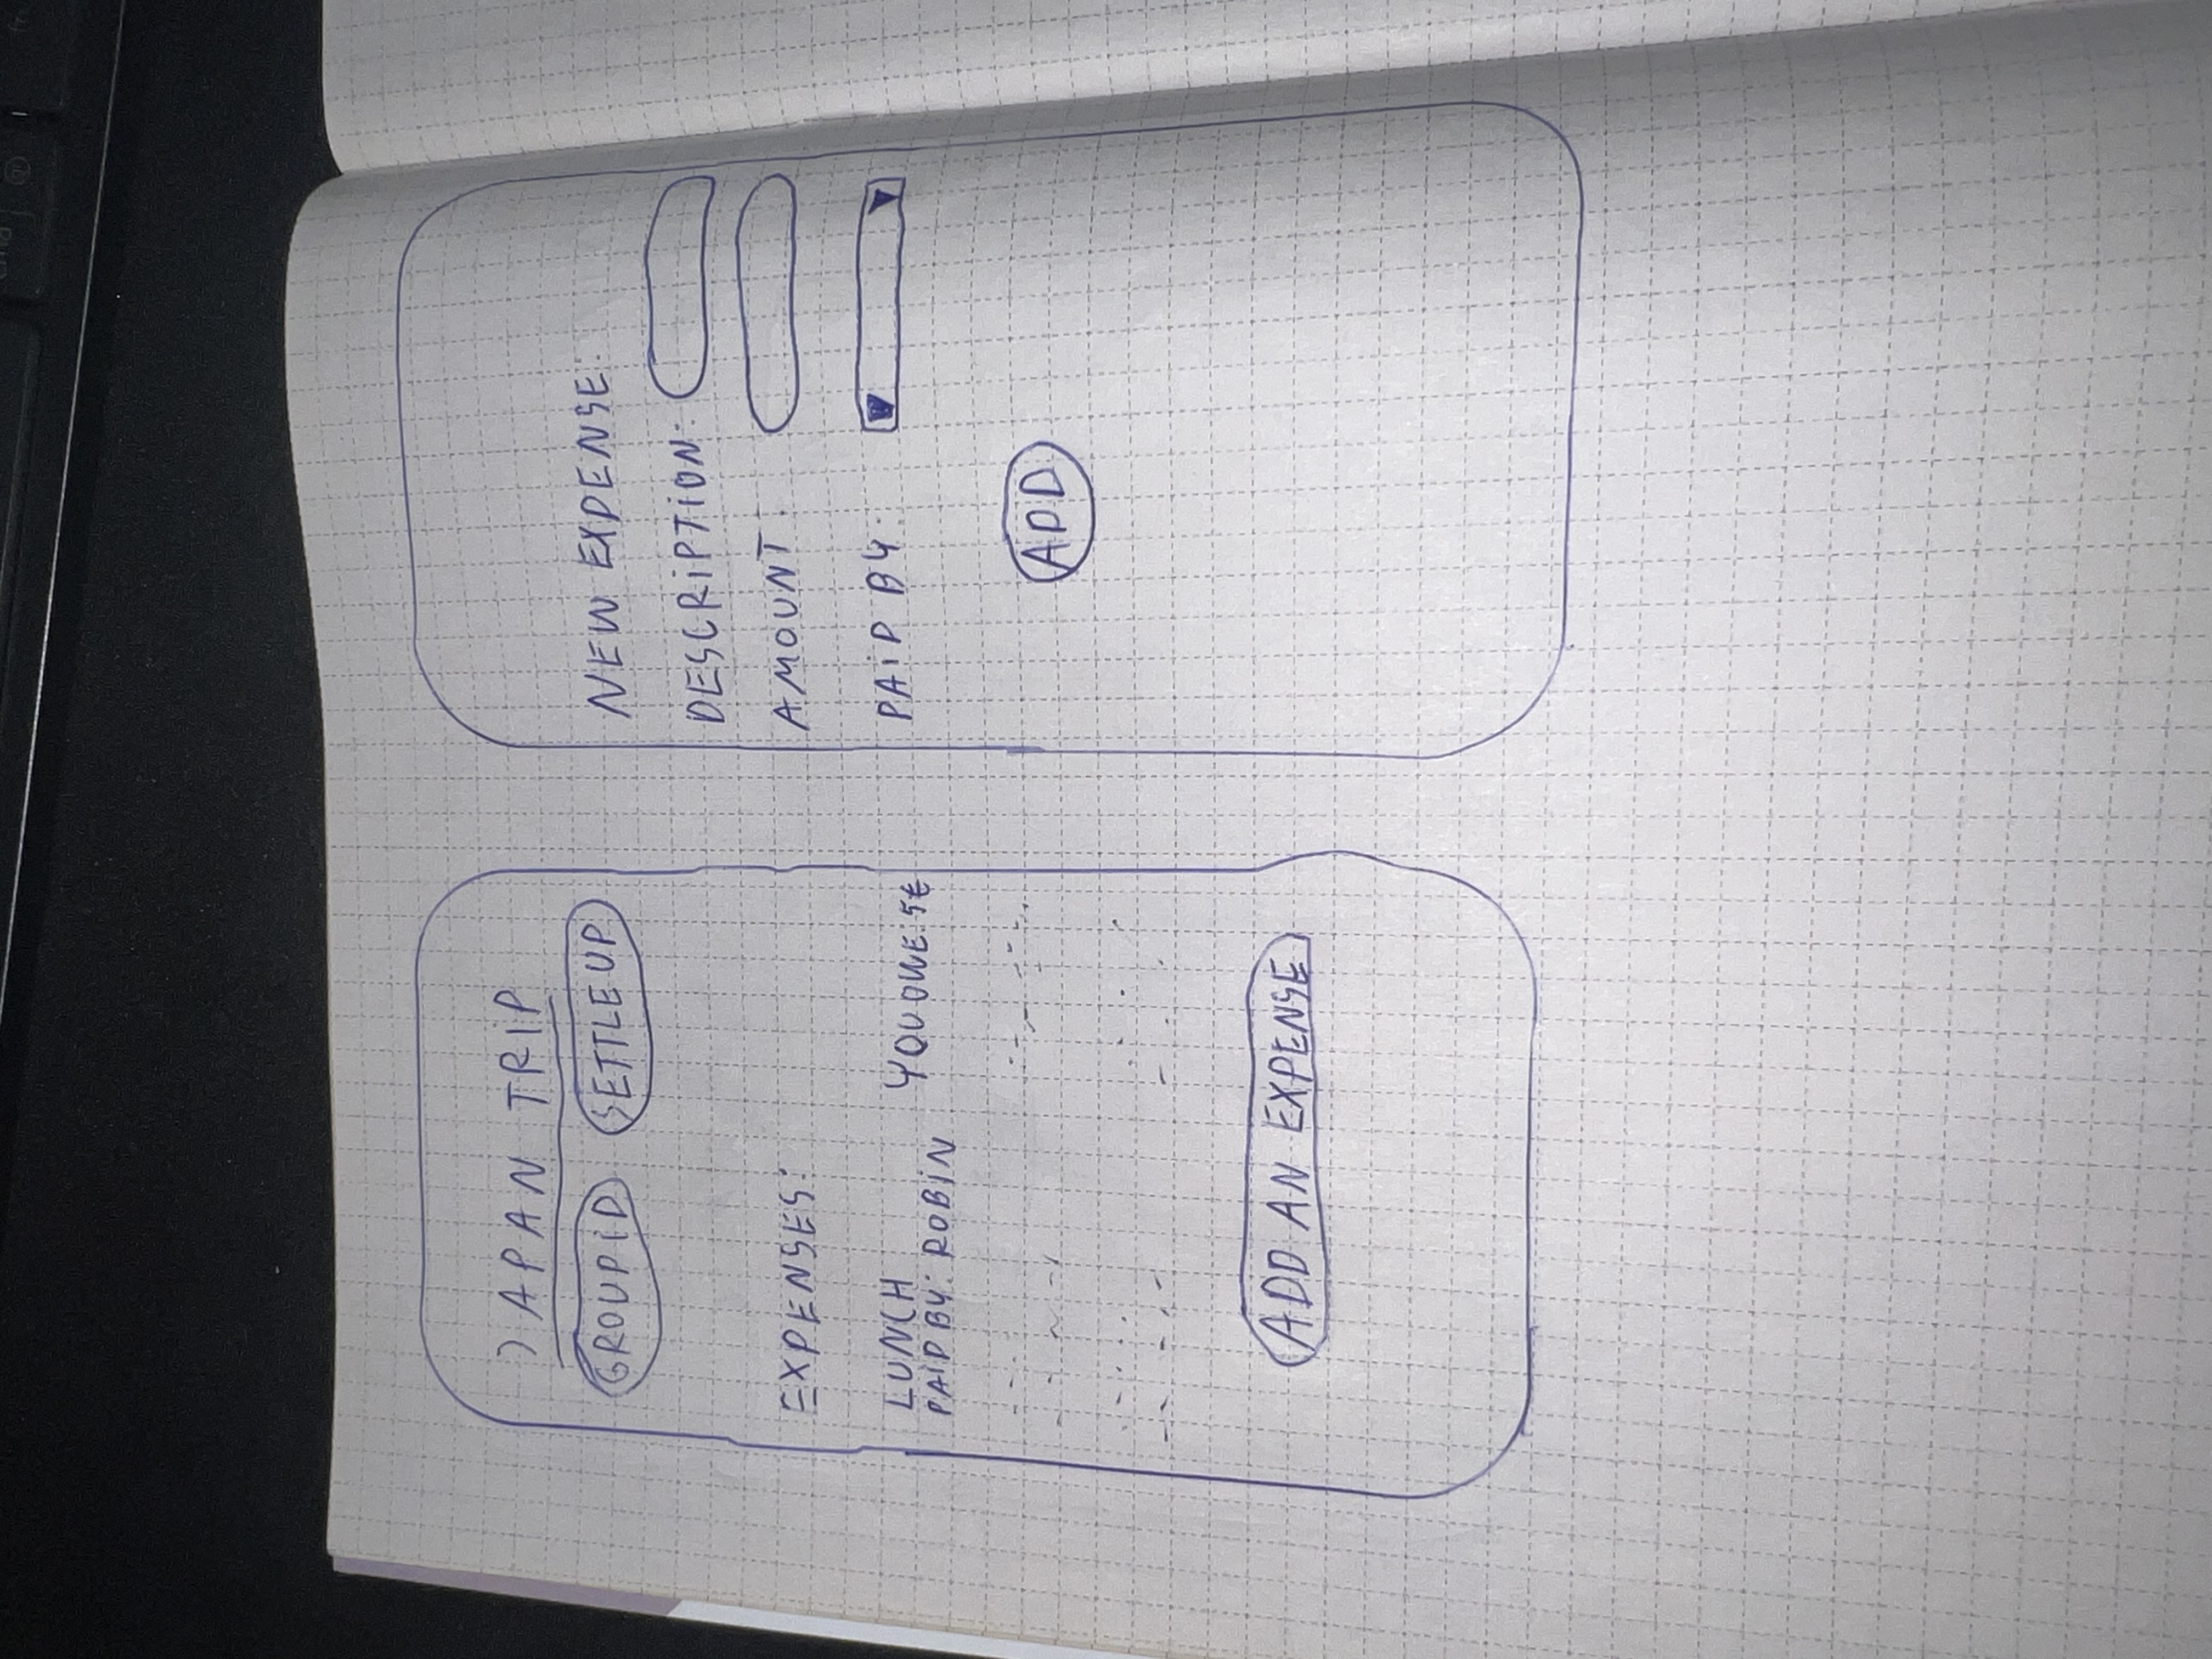 JAPAN TRIP
GROUP ID SETTLE UP
EXPENSES:
LUNCH
PAID BY: ROBIN
YOU OWE: 5€
ADD AN EXPENSE
NEW EXPENSE:
DESCRIPTION:
AMOUNT:
PAID BY:
ADD
cmd